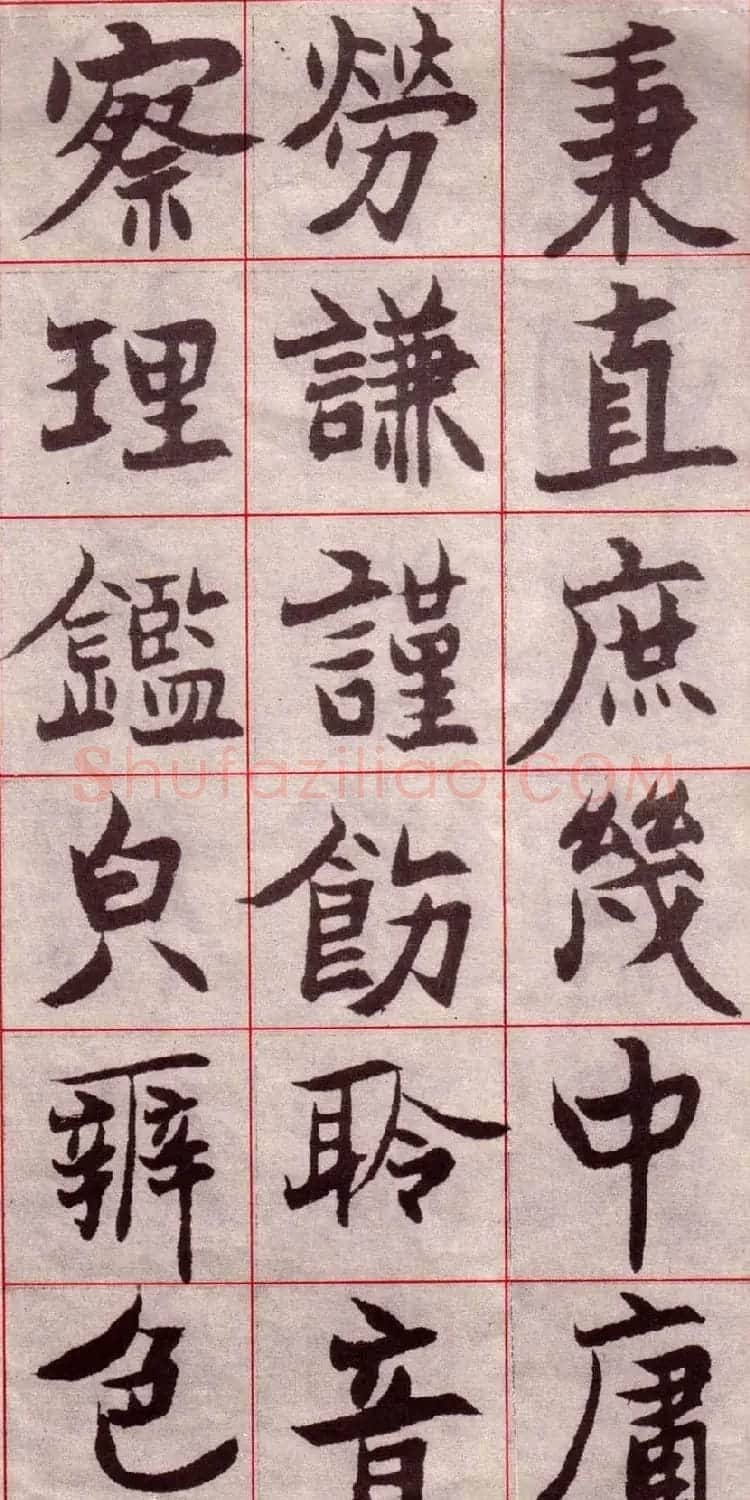 秉直庶幾中庸
勞謙謹飭聆音
察理鑑皃辨色
Shufaziliao.COM